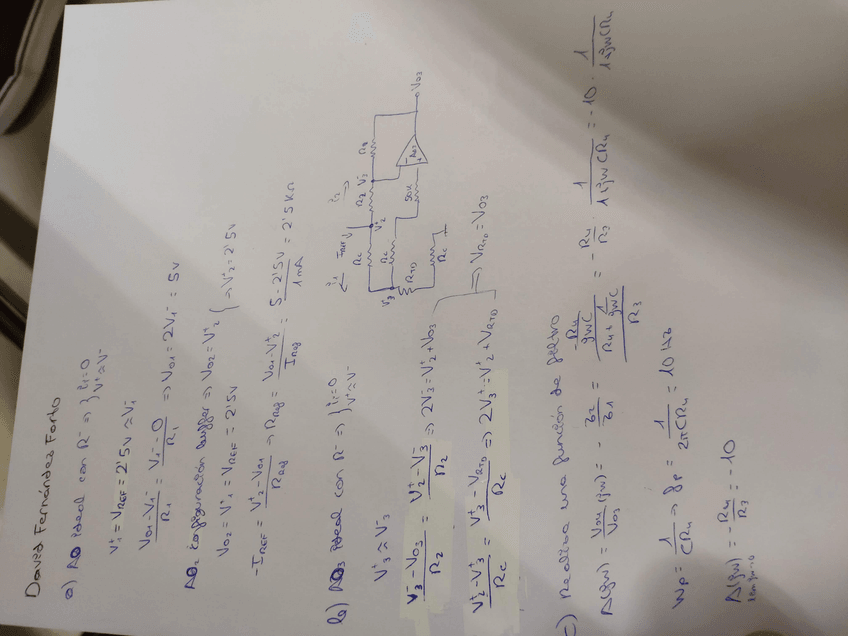 David Fernández Forto
a) AO ideal con R⁻ => { i₁=0 V⁺≈V⁻
V₁⁺ = V_REF = 2'5V ≈ V₁⁻
(V₀₁-V₁⁻)/R₁ = (V₁⁻-0)/R₁ => V₀₁ = 2V₁⁻ = 5V
AO₂ configuración buffer => V₀₂ = V₂⁺
V₀₂ = V₁⁺ = V_REF = 2'5V } => V₂⁺ = 2'5V
-I_REF = (V₂⁺-V₀₁)/R_Reg => R_Reg = (V₀₁-V₂⁺)/I_Reg = (5-2'5V)/1mA = 2'5 KΩ
b) AO₃ ideal con R⁻ => { i₁=0 V⁺≈V⁻
V₃⁺ ≈ V₃⁻
(V₃⁻-V₀₃)/R₂ = (V₂⁺-V₃⁻)/R₂ => 2V₃⁻ = V₂⁺+V₀₃
(V₂⁺-V₃⁺)/R_C = (V₃⁺-V_RTD)/R_C => 2V₃⁺ = V₂⁺+V_RTD
=> V_RTD = V₀₃
R_C
R_C
V₂⁺
R₂
V₃⁻
R₂
50K
V₀₃
V₃
R_TD
R_C
c) Realiza una función de filtro
A(jw) = V₀₄/V₀₃ (jw) = - Z₂/Z₁ = -((R₄/jwC)/(R₄+1/jwC))/R₃ = -R₄/R₃ · 1/(1+jwCR₄) = -10 · 1/(1+jwCR₄)
Wp = 1/CR₄ => fp = 1/2πCR₄ = 10 Hz
A(jw) = -R₄/R₃ = -10